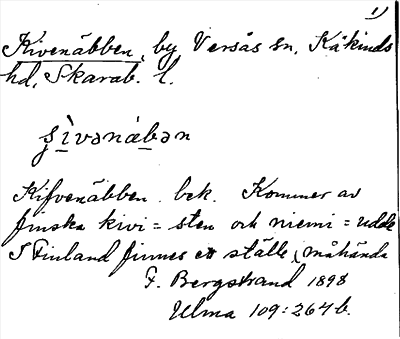 1)
Kivenäbben, by Versås sn, Kåkinds
hd, Skarab. l.
ṣìvənäbən
Kifvenäbben bek. Kommer av
finska kivi = sten och niemi = udde
I Finland finnes ett ställe, måhända
F. Bergstrand 1898
Ulma 109:264 b.